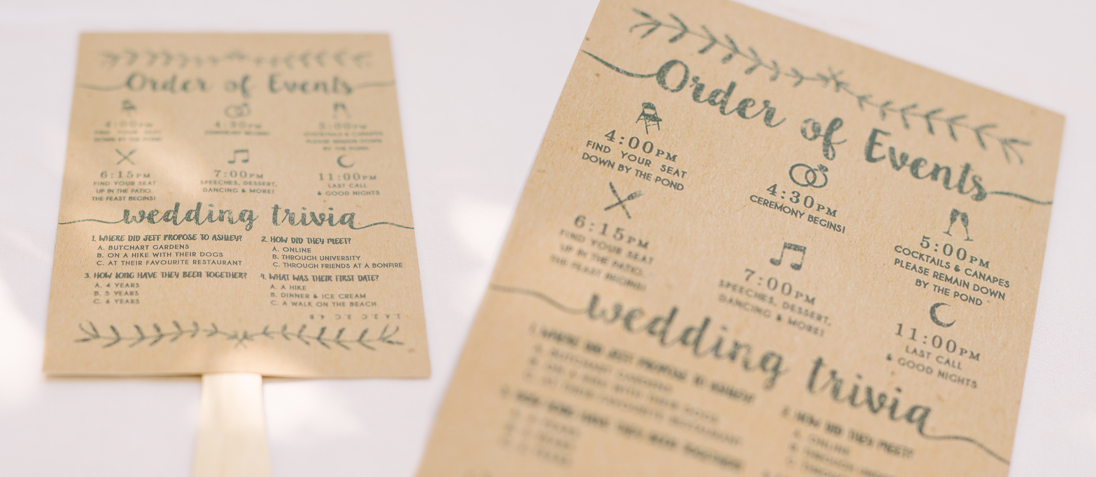 Order of Events
4:00PM
FIND YOUR SEAT
DOWN BY THE POND
4:30PM
CEREMONY BEGINS!
5:00PM
COCKTAILS & CANAPES
PLEASE REMAIN DOWN
BY THE POND
6:15PM
FIND YOUR SEAT
UP IN THE PATIO.
THE FEAST BEGINS!
7:00PM
SPEECHES, DESSERT,
DANCING & MORE!
11:00PM
LAST CALL
& GOOD NIGHTS
wedding trivia
1. WHERE DID JEFF PROPOSE TO ASHLEY?
A. BUTCHART GARDENS
B. ON A HIKE WITH THEIR DOGS
C. AT THEIR FAVOURITE RESTAURANT
2. HOW DID THEY MEET?
A. ONLINE
B. THROUGH UNIVERSITY
C. THROUGH FRIENDS AT A BONFIRE
3. HOW LONG HAVE THEY BEEN TOGETHER?
A. 4 YEARS
B. 5 YEARS
C. 6 YEARS
4. WHAT WAS THEIR FIRST DATE?
A. A HIKE
B. DINNER & ICE CREAM
C. A WALK ON THE BEACH
Order of Events
4:00PM
FIND YOUR SEAT
DOWN BY THE POND
4:30PM
CEREMONY BEGINS!
5:00PM
COCKTAILS & CANAPES
PLEASE REMAIN DOWN
BY THE POND
6:15PM
FIND YOUR SEAT
UP IN THE PATIO.
THE FEAST BEGINS!
7:00PM
SPEECHES, DESSERT,
DANCING & MORE!
11:00PM
LAST CALL
& GOOD NIGHTS
wedding trivia
1. WHERE DID JEFF PROPOSE TO ASHLEY?
A. BUTCHART GARDENS
B. ON A HIKE WITH THEIR DOGS
C. AT THEIR FAVOURITE RESTAURANT
2. HOW DID THEY MEET?
A. ONLINE
B. THROUGH
C. THROUGH